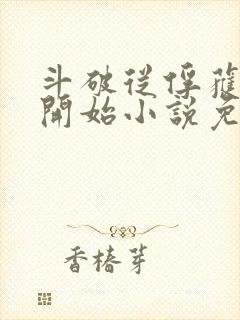 斗破從俘蘿
開始小説免
香椿芽